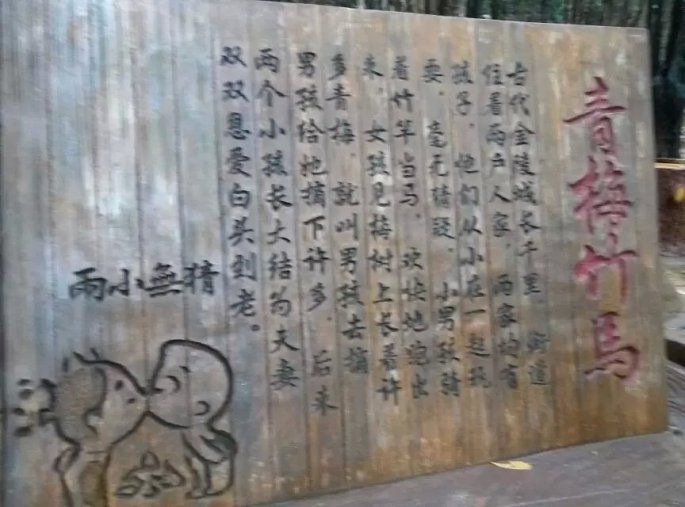 青梅竹马
古代金陵城长千里 街道
住着两户人家，两家均有
孩子，他们从小在一起玩
耍，毫无猜疑，小男孩骑
着竹竿当马，欢快地跑出
来，女孩见梅树上长着许
多青梅，就叫男孩去摘
男孩给她摘下许多，后来
两个小孩长大结为夫妻
双双恩爱白头到老。
兩小無猜